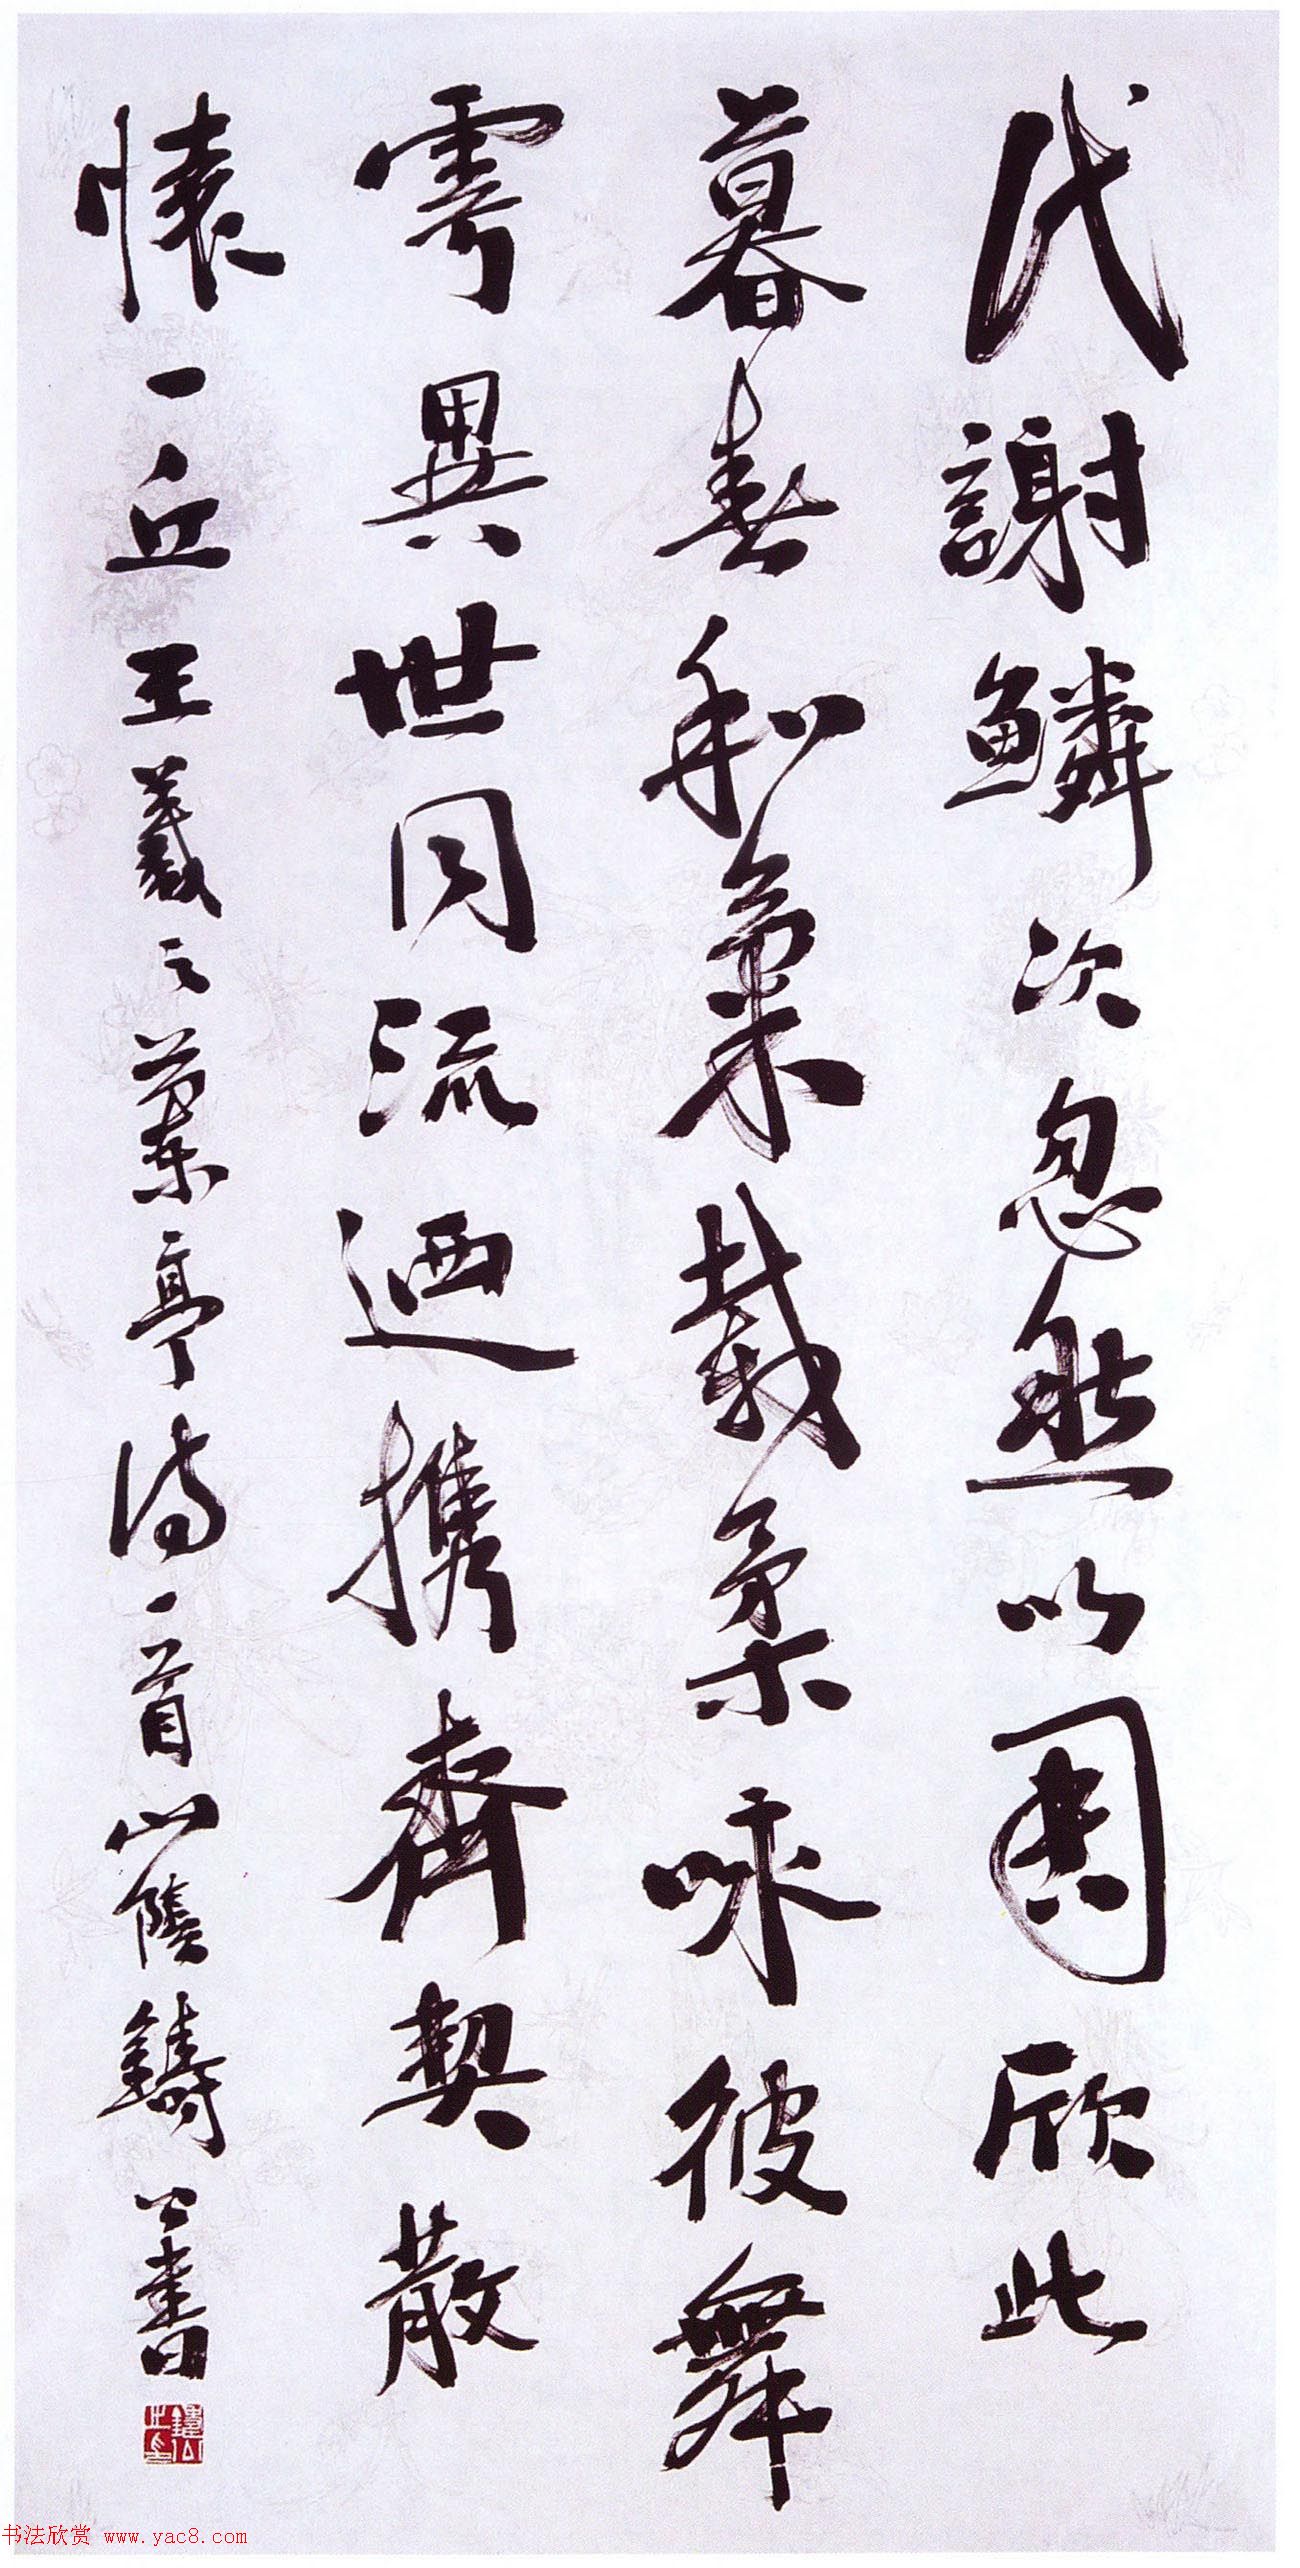 代謝鱗次忽然以周欣此
暮春和氣載柔咏彼舞
雩異世同流迺携齊契散
懷一丘王羲之蘭亭詩一首山陰鑄公書
书法欣赏 www.yac8.com